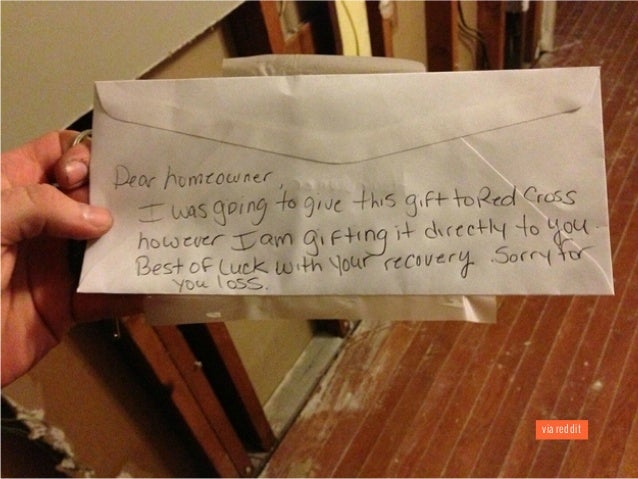 Dear homeowner,
I was going to give this gift to Red Cross
however I am gifting it directly to you.
Best of Luck with your recovery. Sorry for
you loss.
via reddit